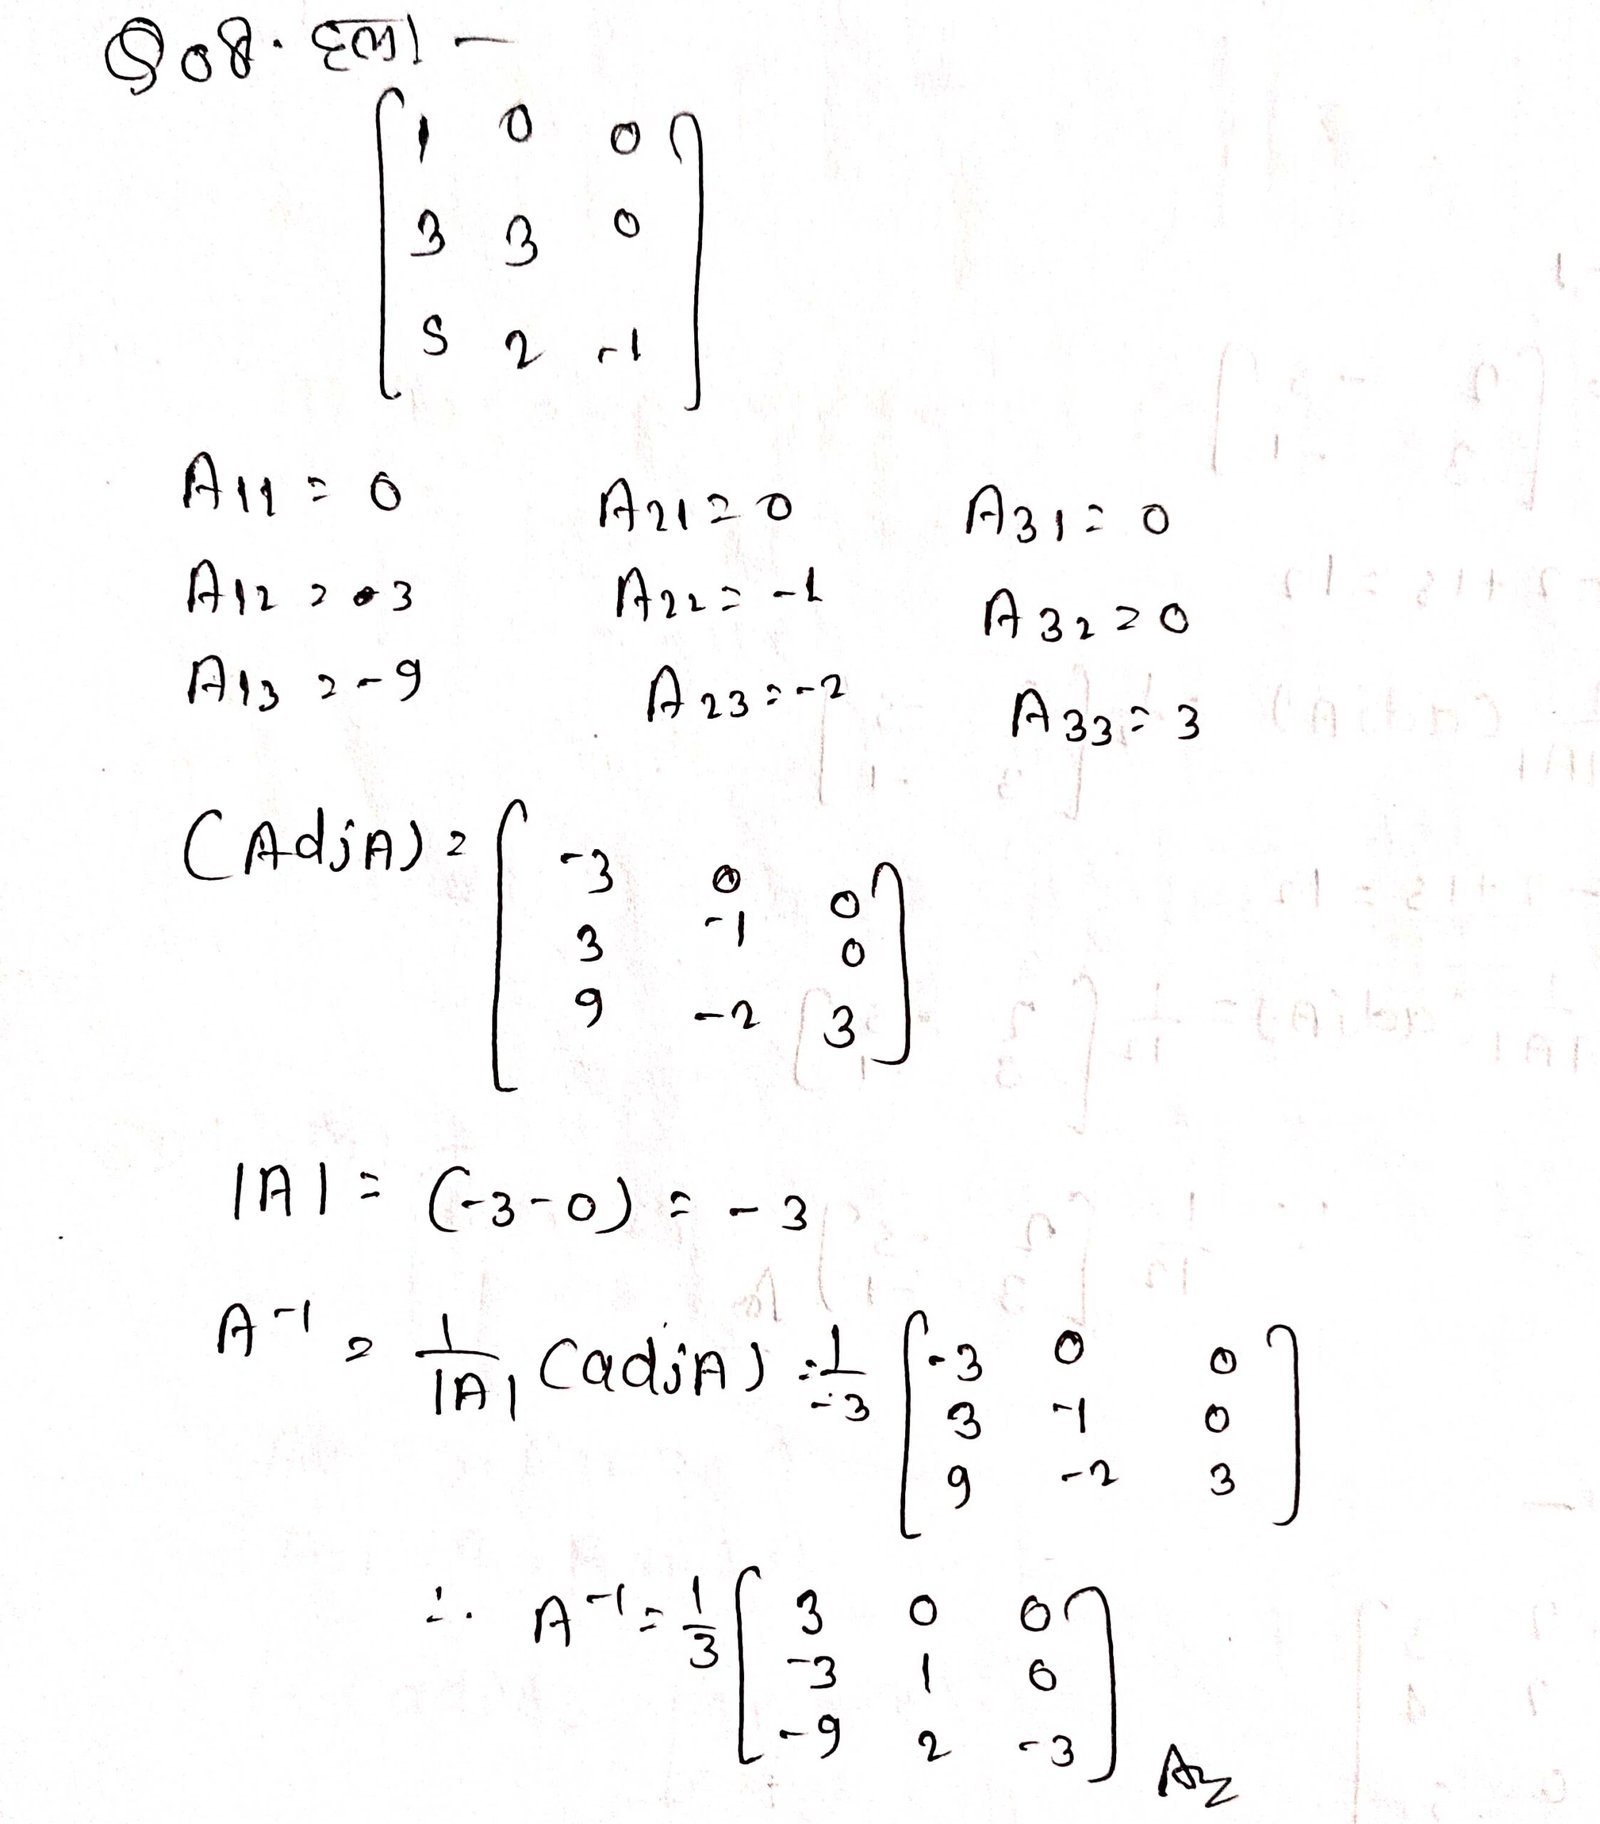 Q08. हल। –
[1 0 0
3 3 0
5 2 -1]
A11 = 0 A21 = 0 A31 = 0
A12 = 3 A22 = -1 A32 = 0
A13 = -9 A23 = -2 A33 = 3
(AdjA) = [-3 0 0
3 -1 0
9 -2 3]
|A| = (-3-0) = -3
A⁻¹ = 1/|A| (adjA) = 1/-3 [-3 0 0
3 -1 0
9 -2 3]
∴ A⁻¹ = 1/3 [3 0 0
-3 1 0
-9 2 -3] Ans